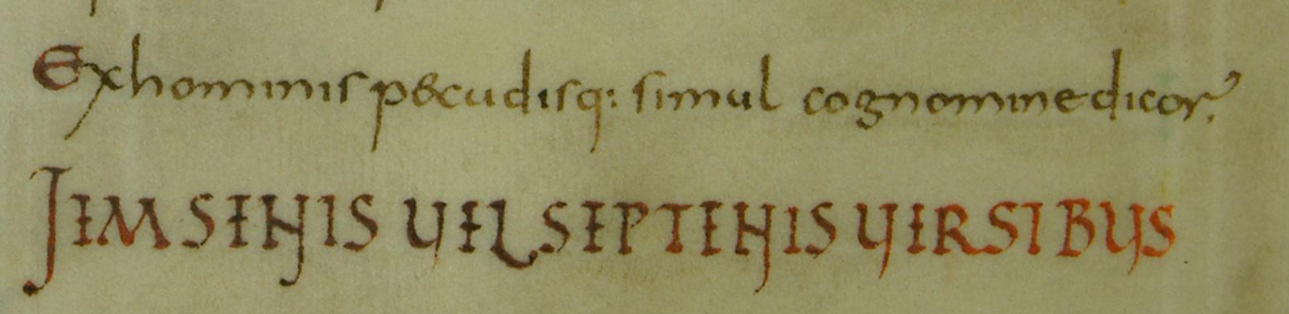 Ex hominis pecudisq: simul cognomine dicor.
ITEM SENIS VEL SEPTENIS VERSIBVS